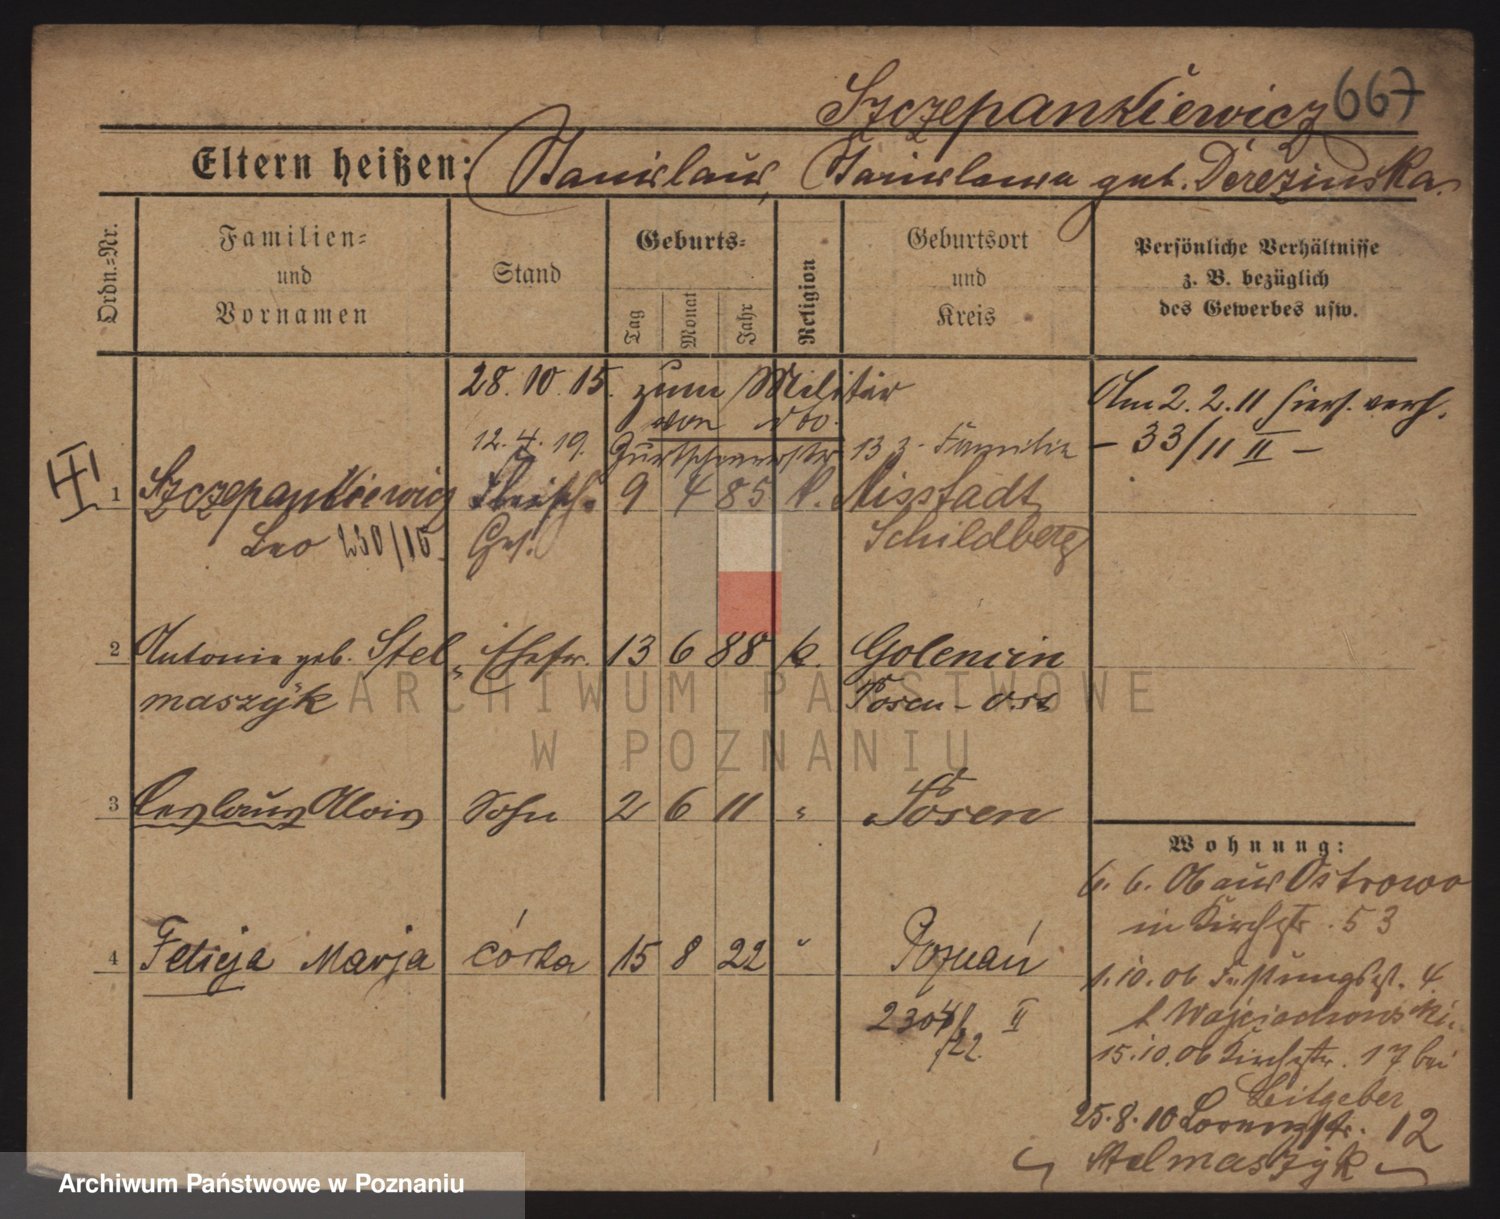 Szczepankiewicz 667
Eltern heißen: Stanislaus, Stanislawa geb. Derezinska.
Ordn.-Nr.
Familien-
und
Vornamen
Stand
Geburts-
Tag
Monat
Jahr
Religion
Geburtsort
und
Kreis
Persönliche Verhältnisse
z. B. bezüglich
des Gewerbes usw.
28.10.15. zum Militär
von dto.
12.4.19. 13 3. Familie
Am 2.2.11 hiers. verh.
- 33/11 II -
1 Szczepankiewicz Fleisch. 9 4 85 k. Mixstadt
Leo 230/15. Ges. Schildberg
2 Antonie geb. Stel- Ehefr. 13 6 88 k. Golencin
maszyk Posen-Ost
3 Ceslaus Alois Sohn 2 6 11 " Posen
4 Felicja Marja córka 15 8 22 " Poznań
2304/ II
/22
Wohnung:
6. 6. 06 aus Ostrowo
in Kirchstr. 53
1.10.06 Festungsst. 4
b Wojciechowski.
15.10.06 Kirchstr. 17 bei
Leitgeber
25.8.10 Lorenzstr. 12
Stelmaszyk
ARCHIWUM PAŃSTWOWE
W POZNANIU
Archiwum Państwowe w Poznaniu